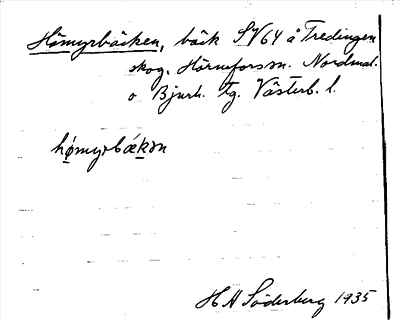 Hömyrbäcken, bäck SV64 å Tredingen
skog. Hörneforssn. Nordmal.
o Bjurh. tg. Västerb. l.
hömyrbäkən
H A Söderberg 1935